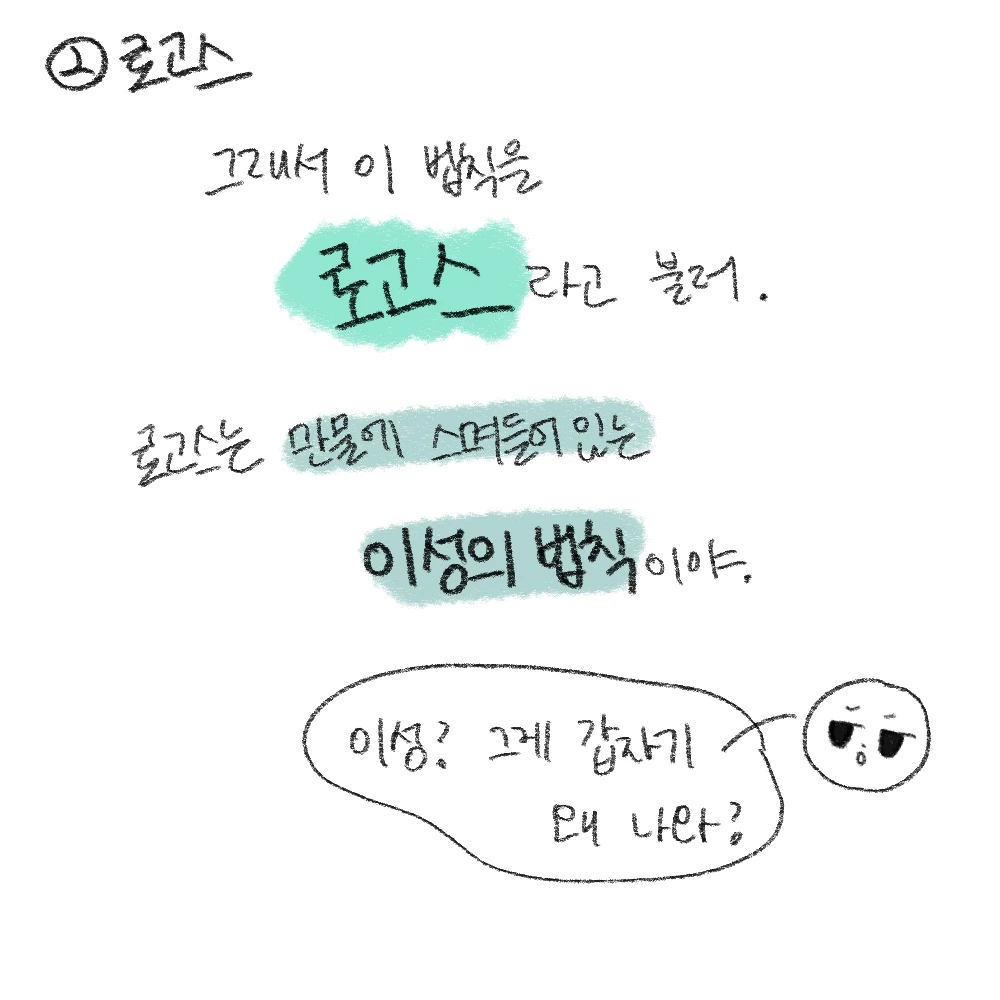 ② 로고스
그래서 이 법칙을
로고스라고 불러.
로고스는 만물에 스며들어 있는
이성의 법칙이야.
이성? 그게 갑자기
왜 나와?